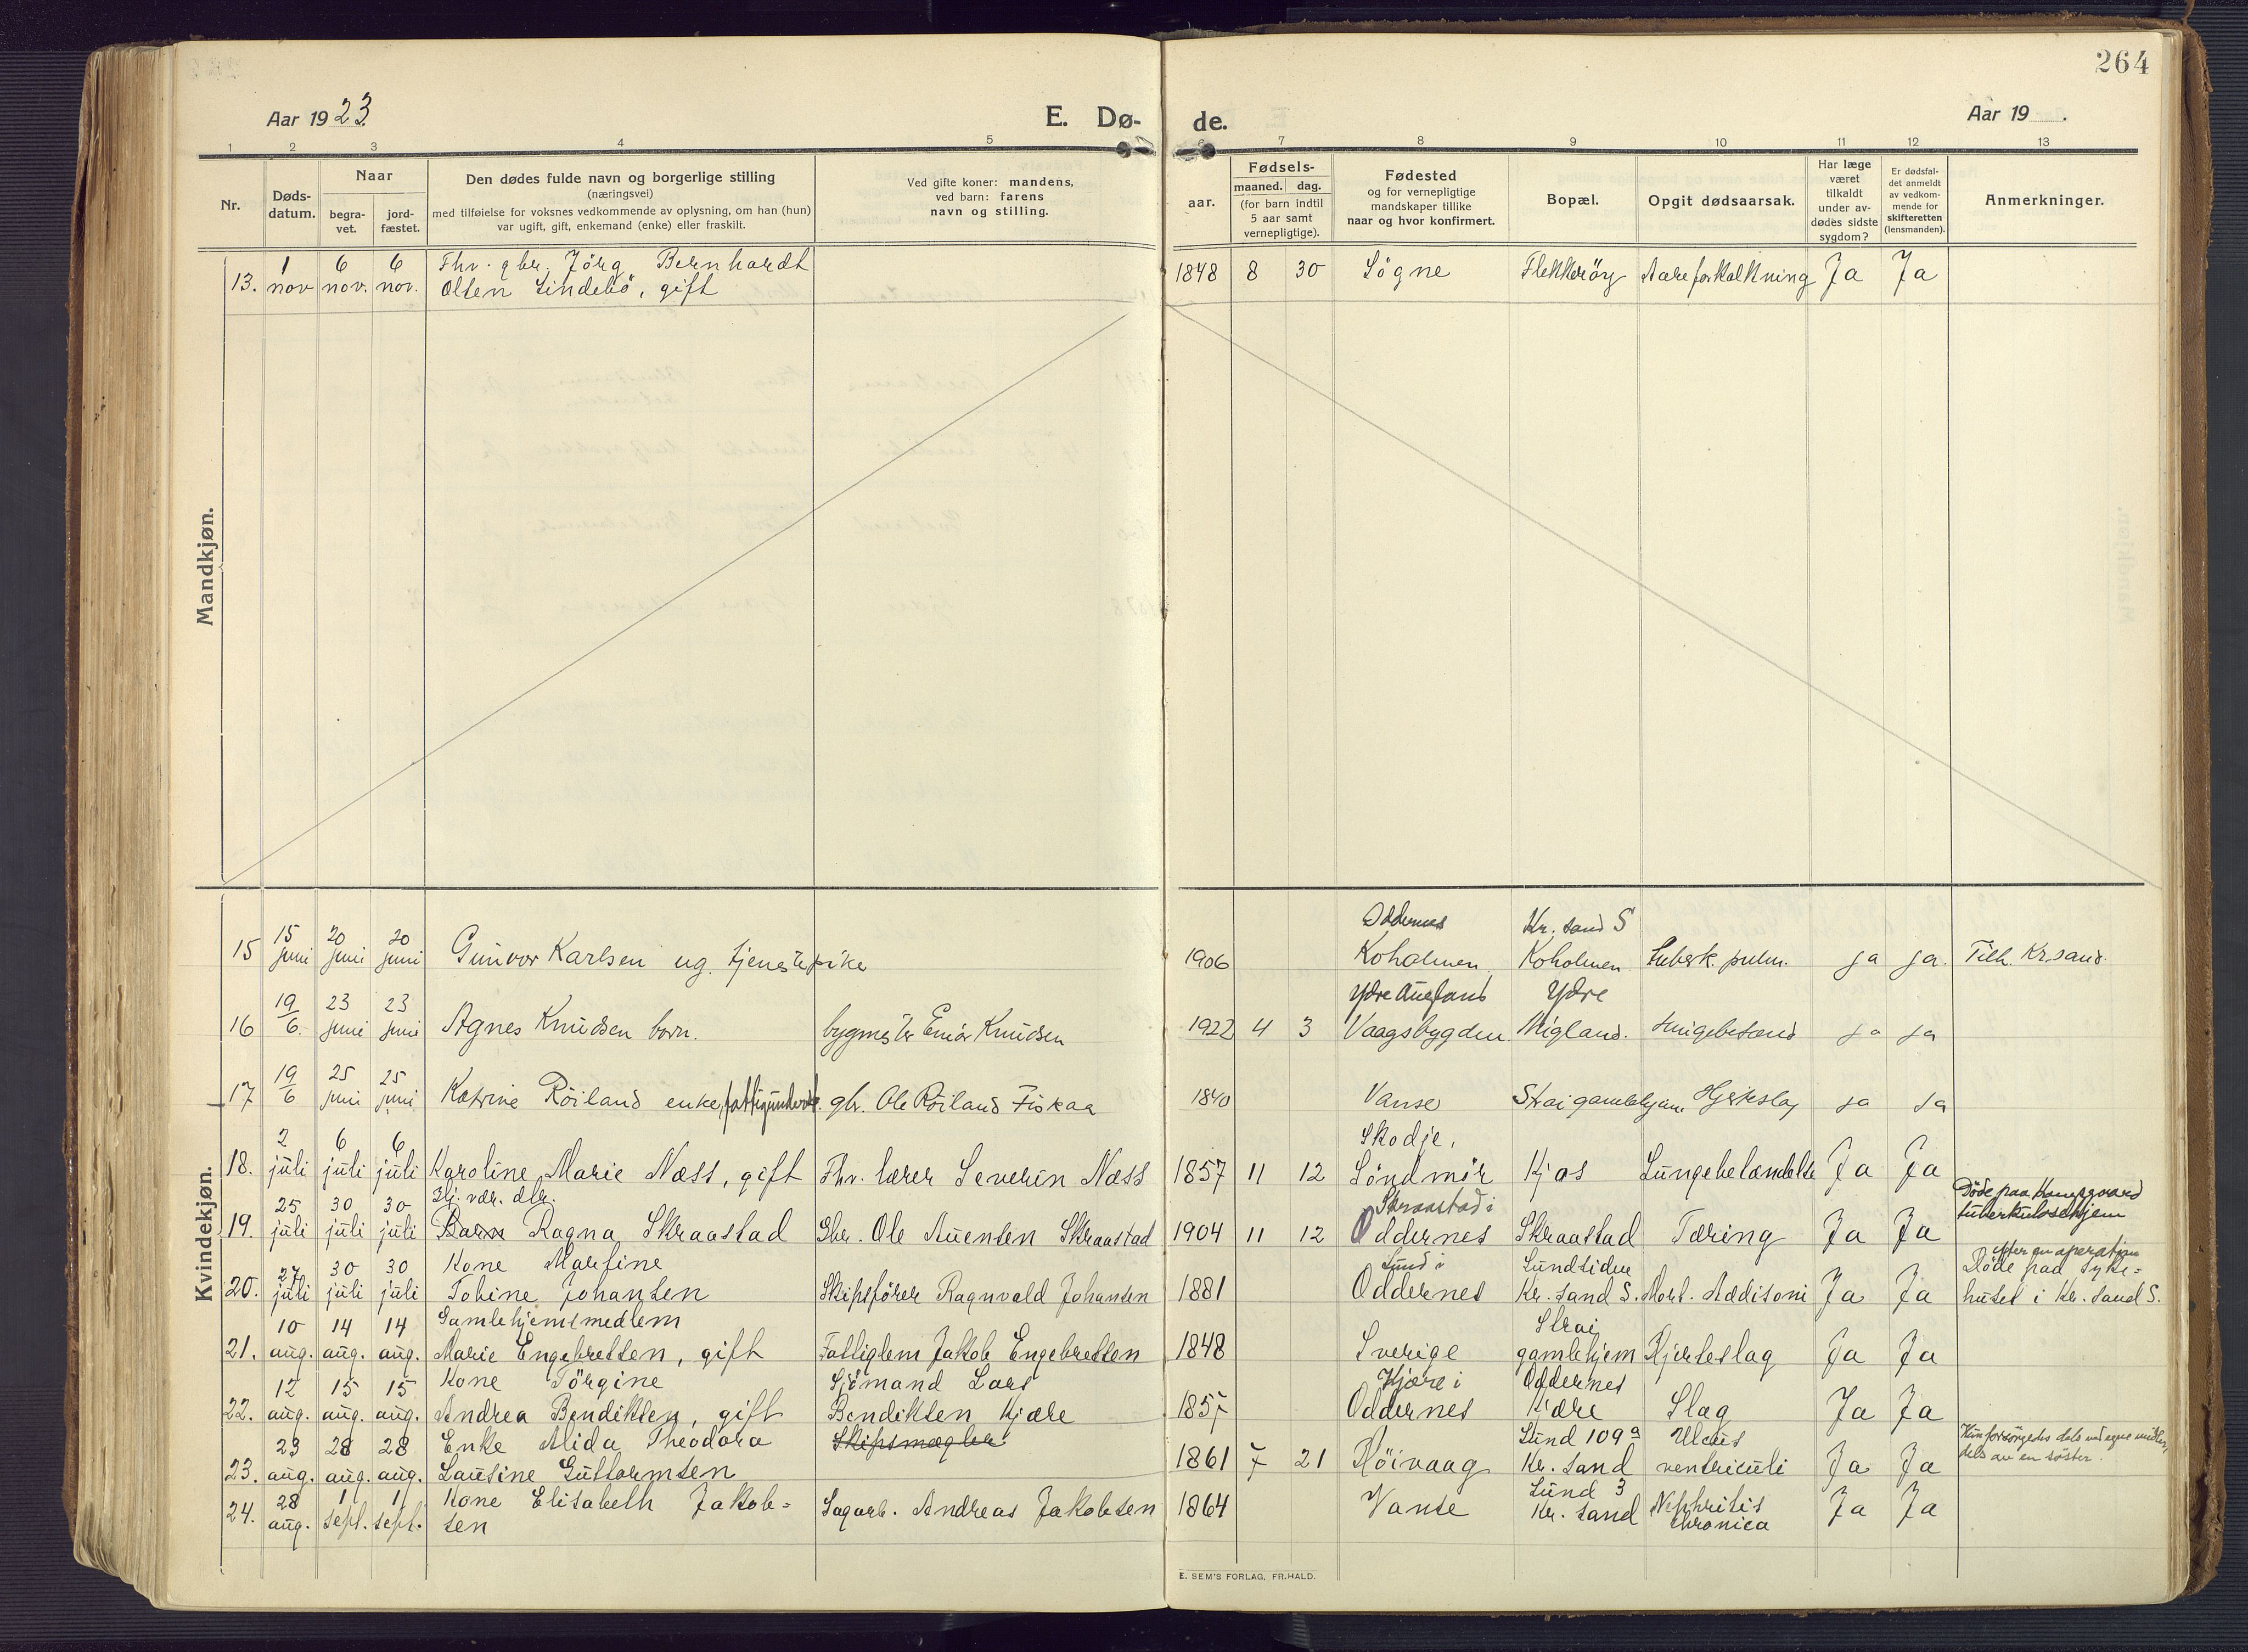 264
Aar 1923.
E. Dø-
de.
Aar 19 .
1 2 3 4 5 6 7 8 9 10 11 12 13
Nr.
Døds-
datum.
Naar
begra-
vet.
jord-
fæstet.
Den dødes fulde navn og borgerlige stilling
(næringsvei)
med tilføielse for voksnes vedkommende av oplysning, om han (hun)
var ugift, gift, enkemand (enke) eller fraskilt.
Ved gifte koner: mandens,
ved barn: farens
navn og stilling.
Fødsels-
aar.
maaned. dag.
(for barn indtil
5 aar samt
vernepligtige).
Fødested
og for vernepligtige
mandskaper tillike
naar og hvor konfirmert.
Bopæl.
Opgit dødsaarsak.
Har læge
været
tilkaldt
under av-
dødes sidste
sygdom?
Er dødsfal-
det anmeldt
av vedkom-
mende for
skifteretten
(lensmanden).
Anmerkninger.
Mandkjøn.
1 6 6 Fhv. gbr. Jörg Bernhardt
13. nov nov. nov. Olsen Lindebö, gift 1848 8 30 Sögne Flekkeröy Aareforkalkning Ja Ja
Kvindekjøn.
15 20 20 Oddernes Kr. sand S
15 juni juni juni Gunvor Karlsen ug. tjenestepike 1906 Koholmen Koholmen Tuberk. pulm. ja ja. Tilh. Kr.sand.
19 23 23 Ydre Augland Ydre
16 6. juni juni Agnes Knudsen barn. bygmester Einar Knudsen 1922 4 3 Vaagsbygden Augland. Lungebetænd ja ja
19 25 25
17 6 juni juni Katrine Röiland enke, fattigunderst. gbr. Ole Röiland Fiskaa 1840 Vanse Strai gamlehjem Hjerteslag ja ja
2 6 6 Skodje,
18. juli juli juli Karoline Marie Næss, gift Fhv. lærer Severin Næss 1857 11 12 Söndmör Kjos Lungebetændelse Ja Ja
25 30 30 Hj. vær. dtr. Skraastad i Döde paa Kongsgaard
19. juli juli juli Barn Ragna Skraastad Gbr. Ole Auensen Skraastad 1904 11 12 Oddernes Skraastad Tæring Ja Ja tuberkulosehjem
27 30 30 Kone Martine Lund i Lundsiden efter en operation
20. juli juli juli Tobine Johansen Skipsförer Ragnvald Johansen 1881 Oddernes Kr. sand S. Morb. Addisoni Ja Ja Döde paa syke=
husel i Kr. sand S.
10 14 14 Gamlehjemsmedlem Strai
21. aug. aug. aug. Marie Engebretsen, gift Fattiglem Jakob Engebretsen 1848 Sverige gamlehjem Hjerteslag Ja Ja
12 15 15 Kone Törgine Sjömand Lars Kjære i Oddernes
22. aug. aug. aug. Andrea Bendiksen, gift Bendiksen Kjære 1857 Oddernes Kjære Slag Ja Ja
23 28 28 Enke Alida Theodora Skipsmægler Lund 109a Ulcus Hun forsörgedes dels ved egne midler,
23. aug. aug. aug. Lausine Guttormsen 1861 7 21 Höivaag Kr. sand ventriculi Ja Ja dels av en söster.
28 1 1 Kone Elisabeth Jakob= Lund 3 Nephritis
24. aug. sept. sept. sen Sagarb. Andreas Jakobsen 1864 Vanse Kr. sand chronica Ja Ja
E. SEM'S FORLAG, FR.HALD.